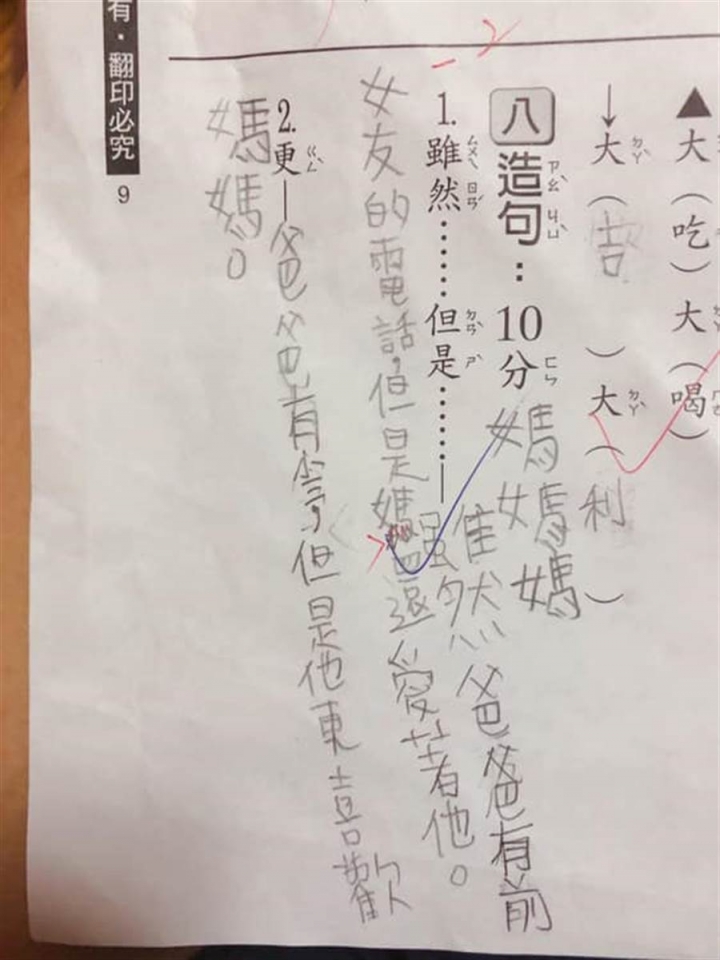 ▲大(吃)大(喝)
↓大(吉)大(利)
八 造句：10分
媽媽媽
-2
1.雖然……但是……—雖然爸爸有前
女友的電話,但是媽還愛著他。
2.更—爸爸有,但是他東喜歡
媽媽。
有・翻印必究
9